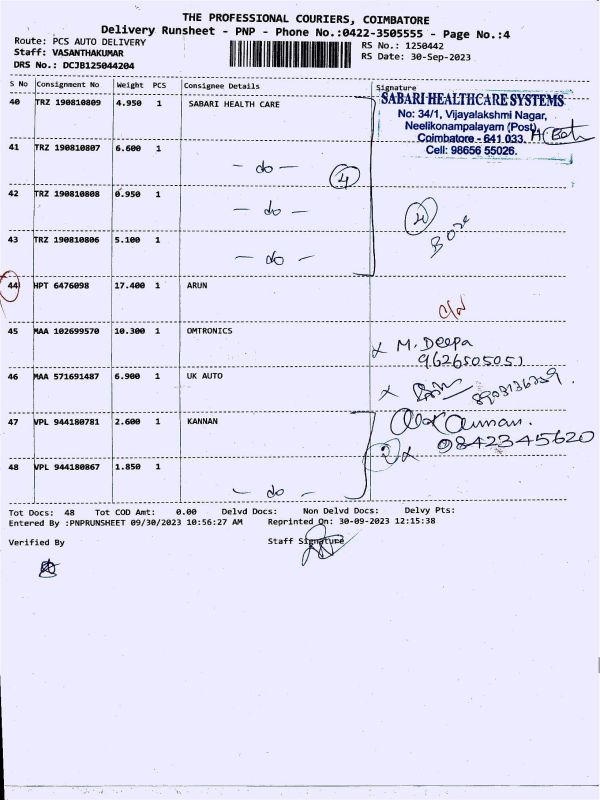 THE PROFESSIONAL COURIERS, COIMBATORE
Delivery Runsheet - PNP - Phone No.:0422-3505555 - Page No.:4
Route: PCS AUTO DELIVERY
RS No.: 1250442
Staff: VASANTHAKUMAR
RS Date: 30-Sep-2023
DRS No.: DCJB125044204
S No Consignment No Weight PCS Consignee Details Signature
40 TRZ 190810809 4.950 1 SABARI HEALTH CARE
SABARI HEALTHCARE SYSTEMS
No: 34/1, Vijayalakshmi Nagar,
Neelikonampalayam (Post),
Coimbatore - 641 033.
Cell: 98656 55026.
41 TRZ 190810807 6.600 1
- do - 4
42 TRZ 190810808 0.950 1
- do - 4 Box
43 TRZ 190810806 5.100 1
- do -
44 HPT 6476098 17.400 1 ARUN
45 MAA 102699570 10.300 1 OMTRONICS
x M. Deepa
9626505051
46 MAA 571691487 6.900 1 UK AUTO
x
47 VPL 944180781 2.600 1 KANNAN
09842345620
2 x
48 VPL 944180867 1.850 1
- do -
Tot Docs: 48 Tot COD Amt: 0.00 Delvd Docs: Non Delvd Docs: Delvy Pts:
Entered By :PNPRUNSHEET 09/30/2023 10:56:27 AM Reprinted On: 30-09-2023 12:15:38
Verified By Staff Signature